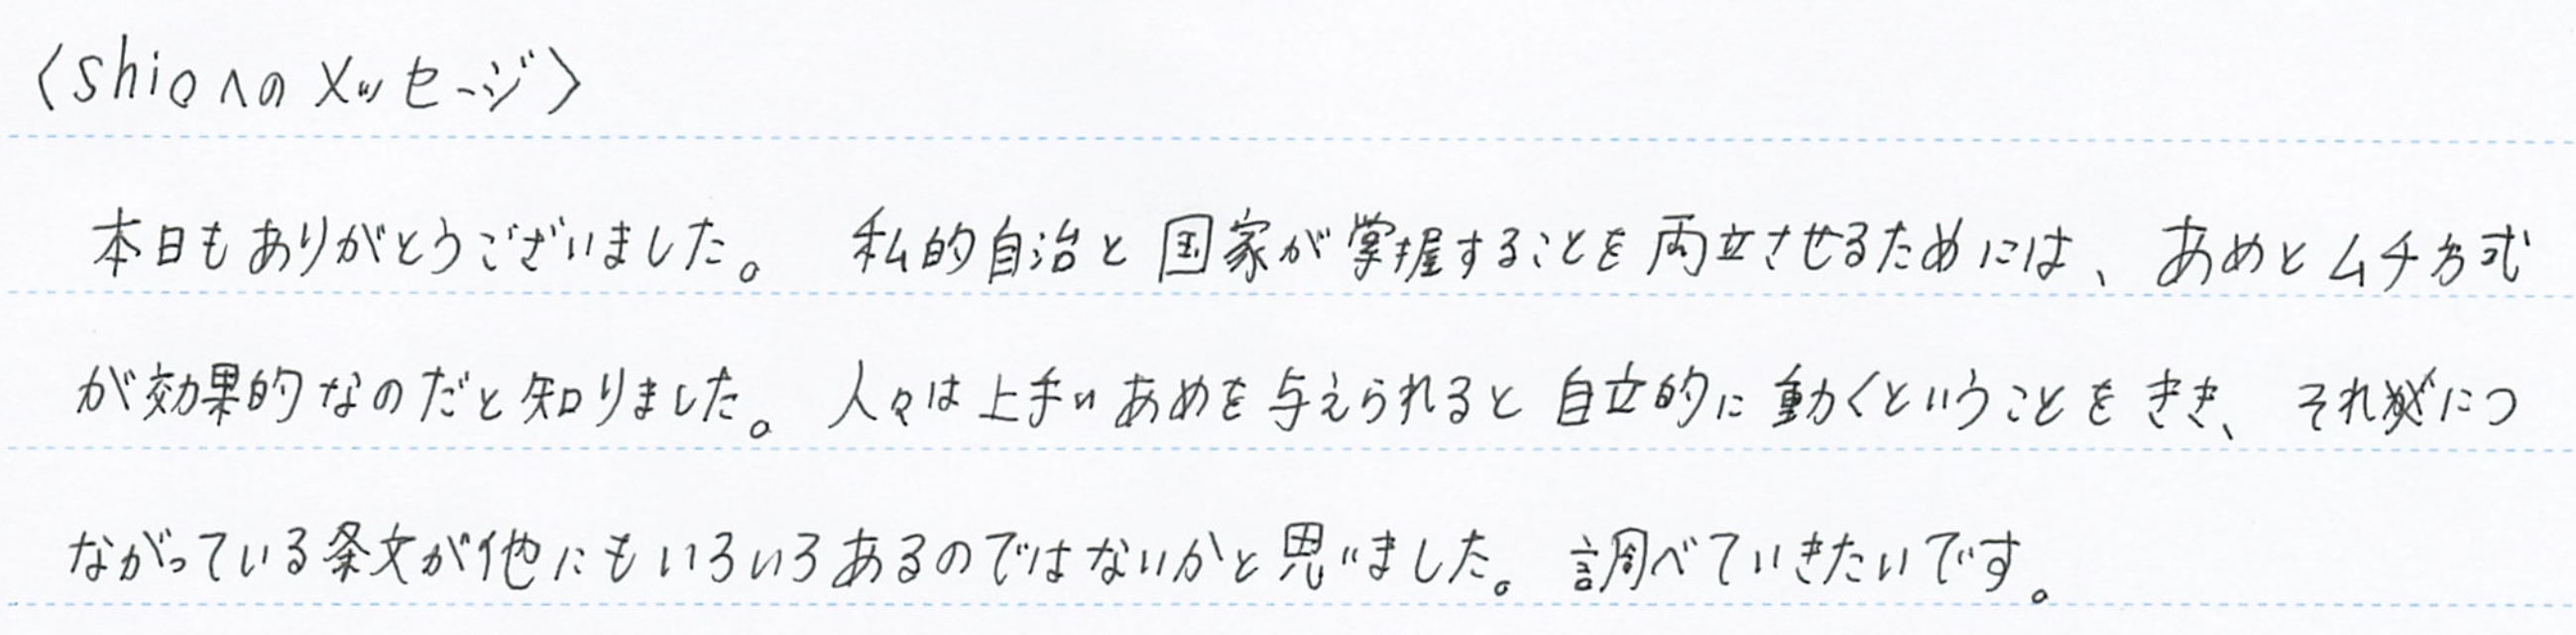 〈shioへのメッセージ〉
本日もありがとうございました。 私的自治と国家が掌握することを両立させるためには、あめとムチ方式
が効果的なのだと知りました。人々は上手いあめを与えられると自立的に動くということをきき、それにつ
ながっている条文が他にもいろいろあるのではないかと思いました。調べていきたいです。